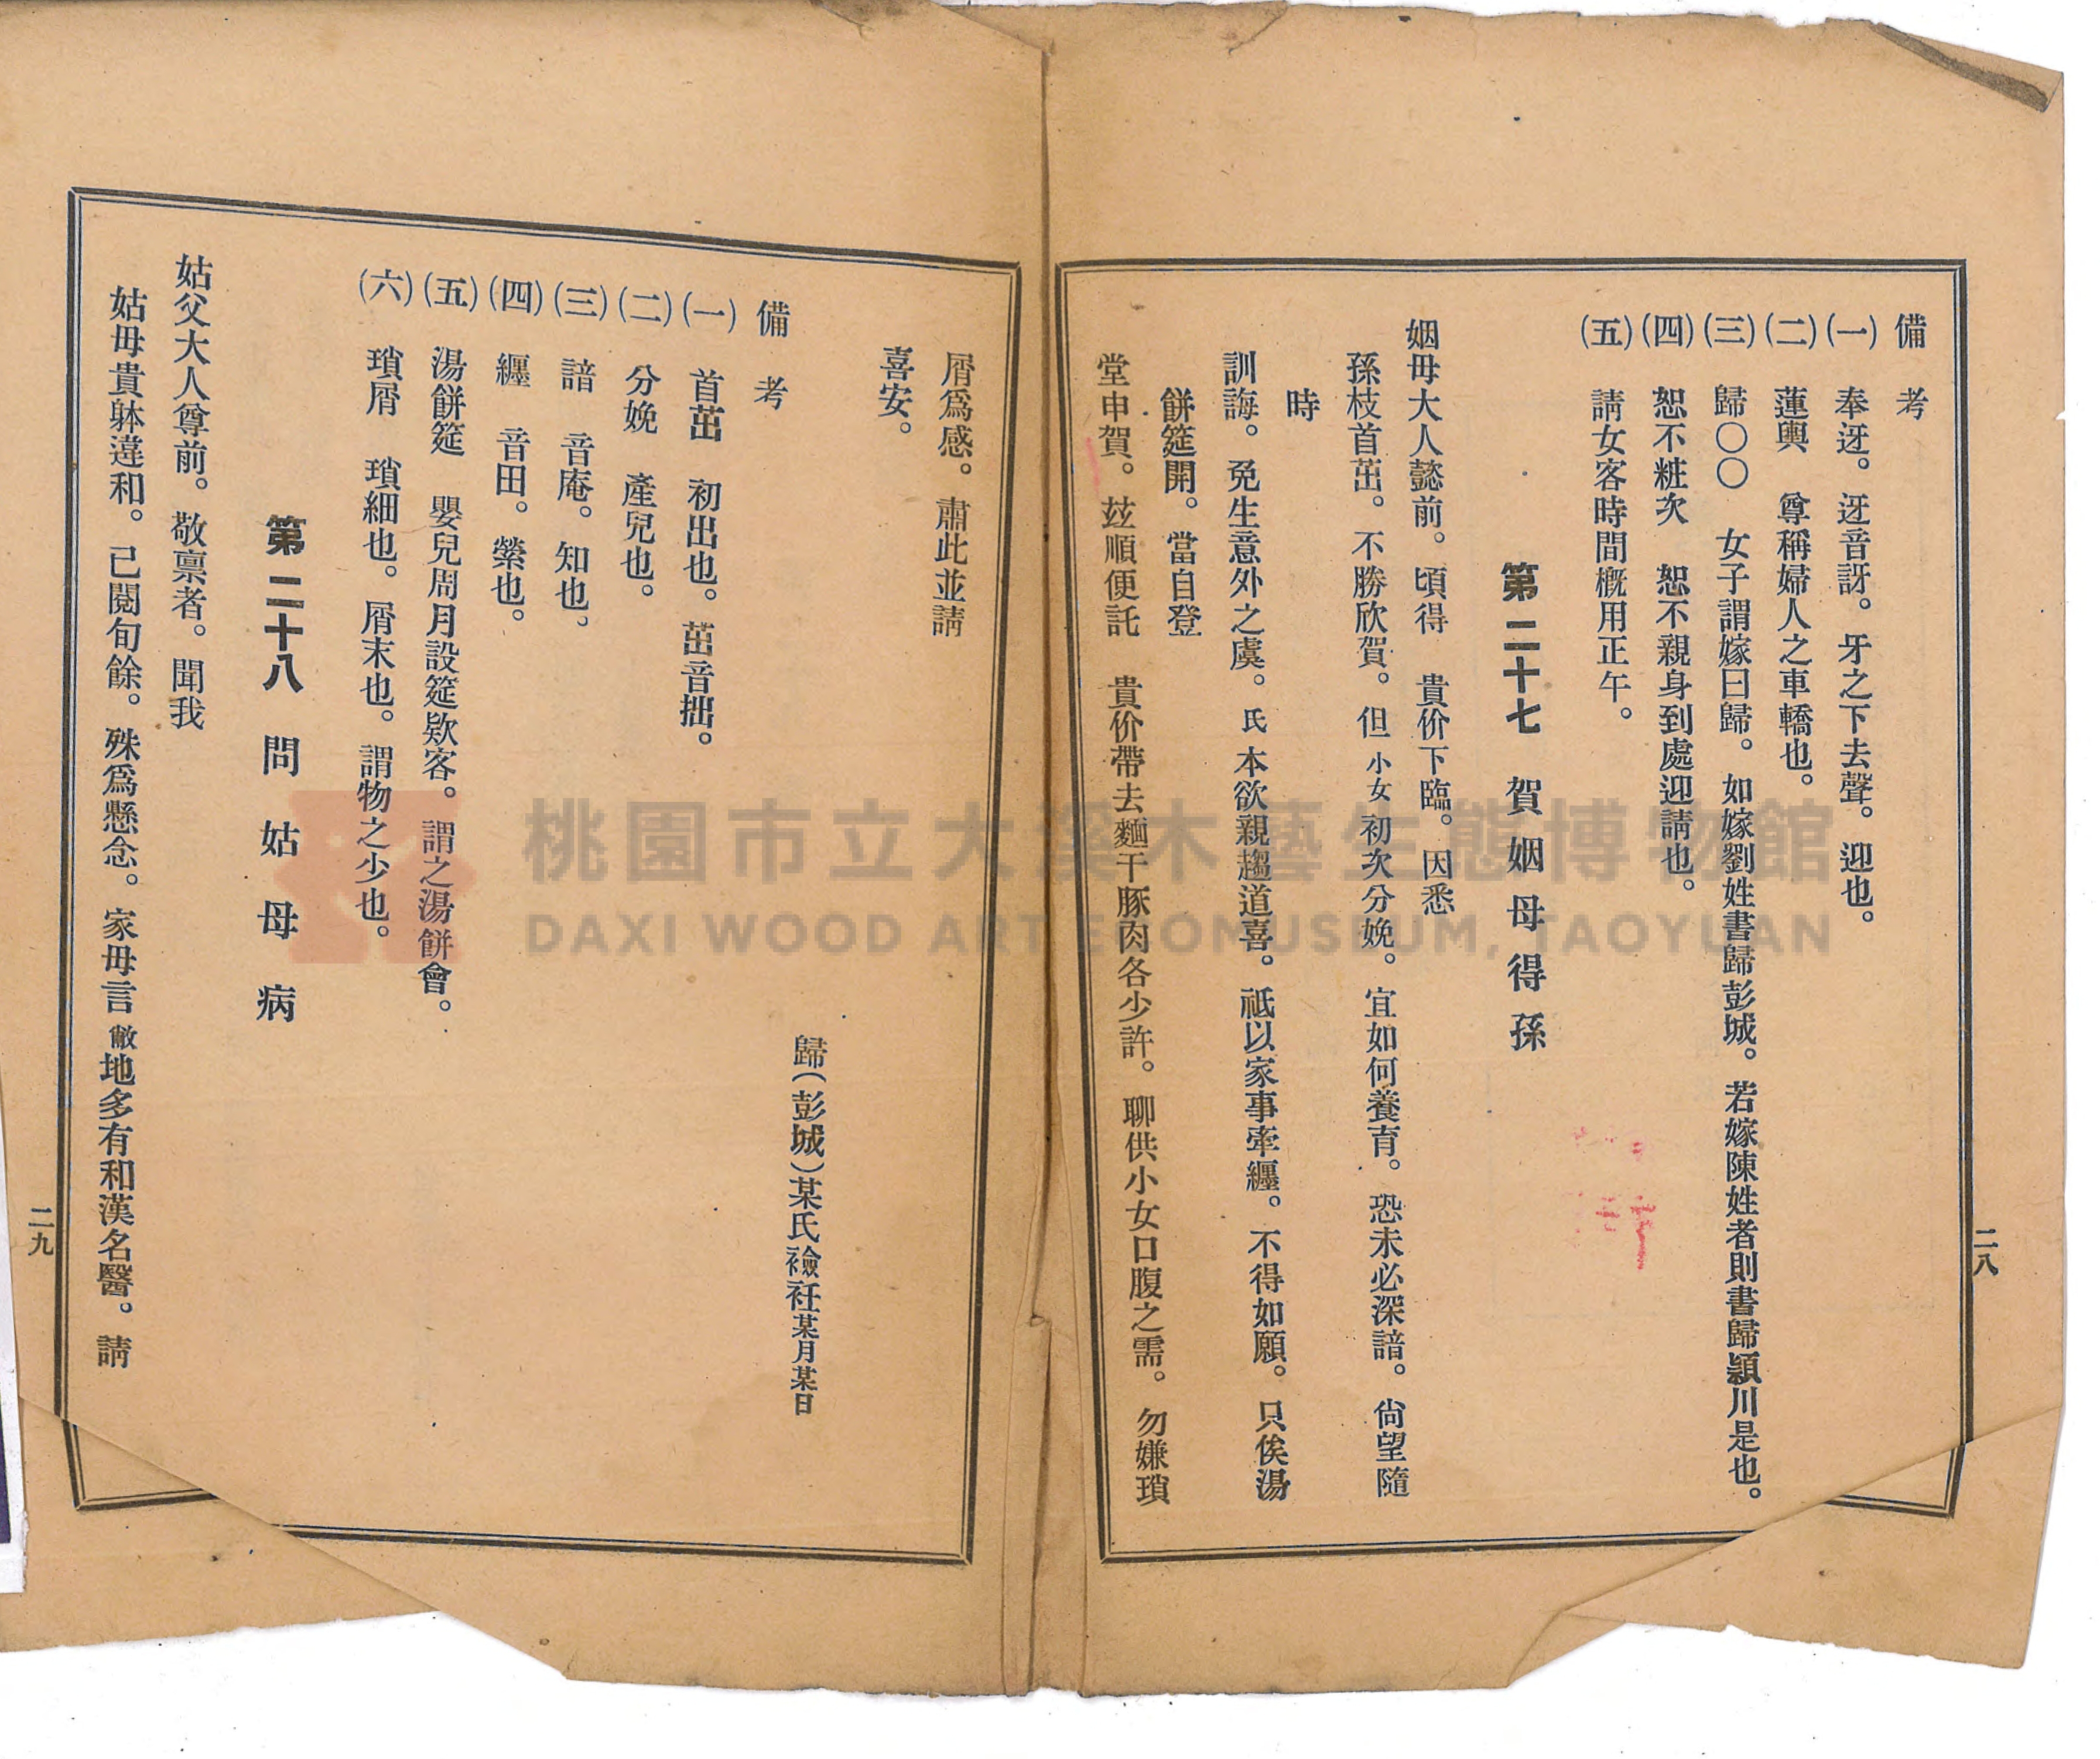 備考
(一) 奉迓。迓音訝。牙之下去聲。迎也。
(二) 蓮輿　尊稱婦人之車轎也。
(三) 歸〇〇　女子謂嫁曰歸。如嫁劉姓書歸彭城。若嫁陳姓者則書歸潁川是也。
(四) 恕不粧次　恕不親身到處迎請也。
(五) 請女客時間概用正午。
第二十七　賀姻母得孫
姻母大人懿前。頃得　貴价下臨。因悉
孫枝首茁。不勝欣賀。但小女初次分娩。宜如何養育。恐未必深諳。尙望隨
時
訓誨。免生意外之虞。氏本欲親趨道喜。祇以家事牽纏。不得如願。只俟湯
餅筵開。當自登
堂申賀。玆順便託　貴价帶去麵干豚肉各少許。聊供小女口腹之需。勿嫌瑣
二八
屑爲感。肅此並請
喜安。
歸(彭城)某氏襝衽某月某日
備考
(一) 首茁　初出也。茁音拙。
(二) 分娩　產兒也。
(三) 諳　音庵。知也。
(四) 纒　音田。縈也。
(五) 湯餅筵　嬰兒周月設筵欵客。謂之湯餅會。
(六) 瑣屑　瑣細也。屑末也。謂物之少也。
第二十八　問姑母病
姑父大人尊前。敬禀者。聞我
姑母貴躰違和。已閱旬餘。殊爲懸念。家母言敝地多有和漢名醫。請
二九
桃園市立大溪木藝生態博物館
DAXI WOOD ART ECOMUSEUM, TAOYUAN